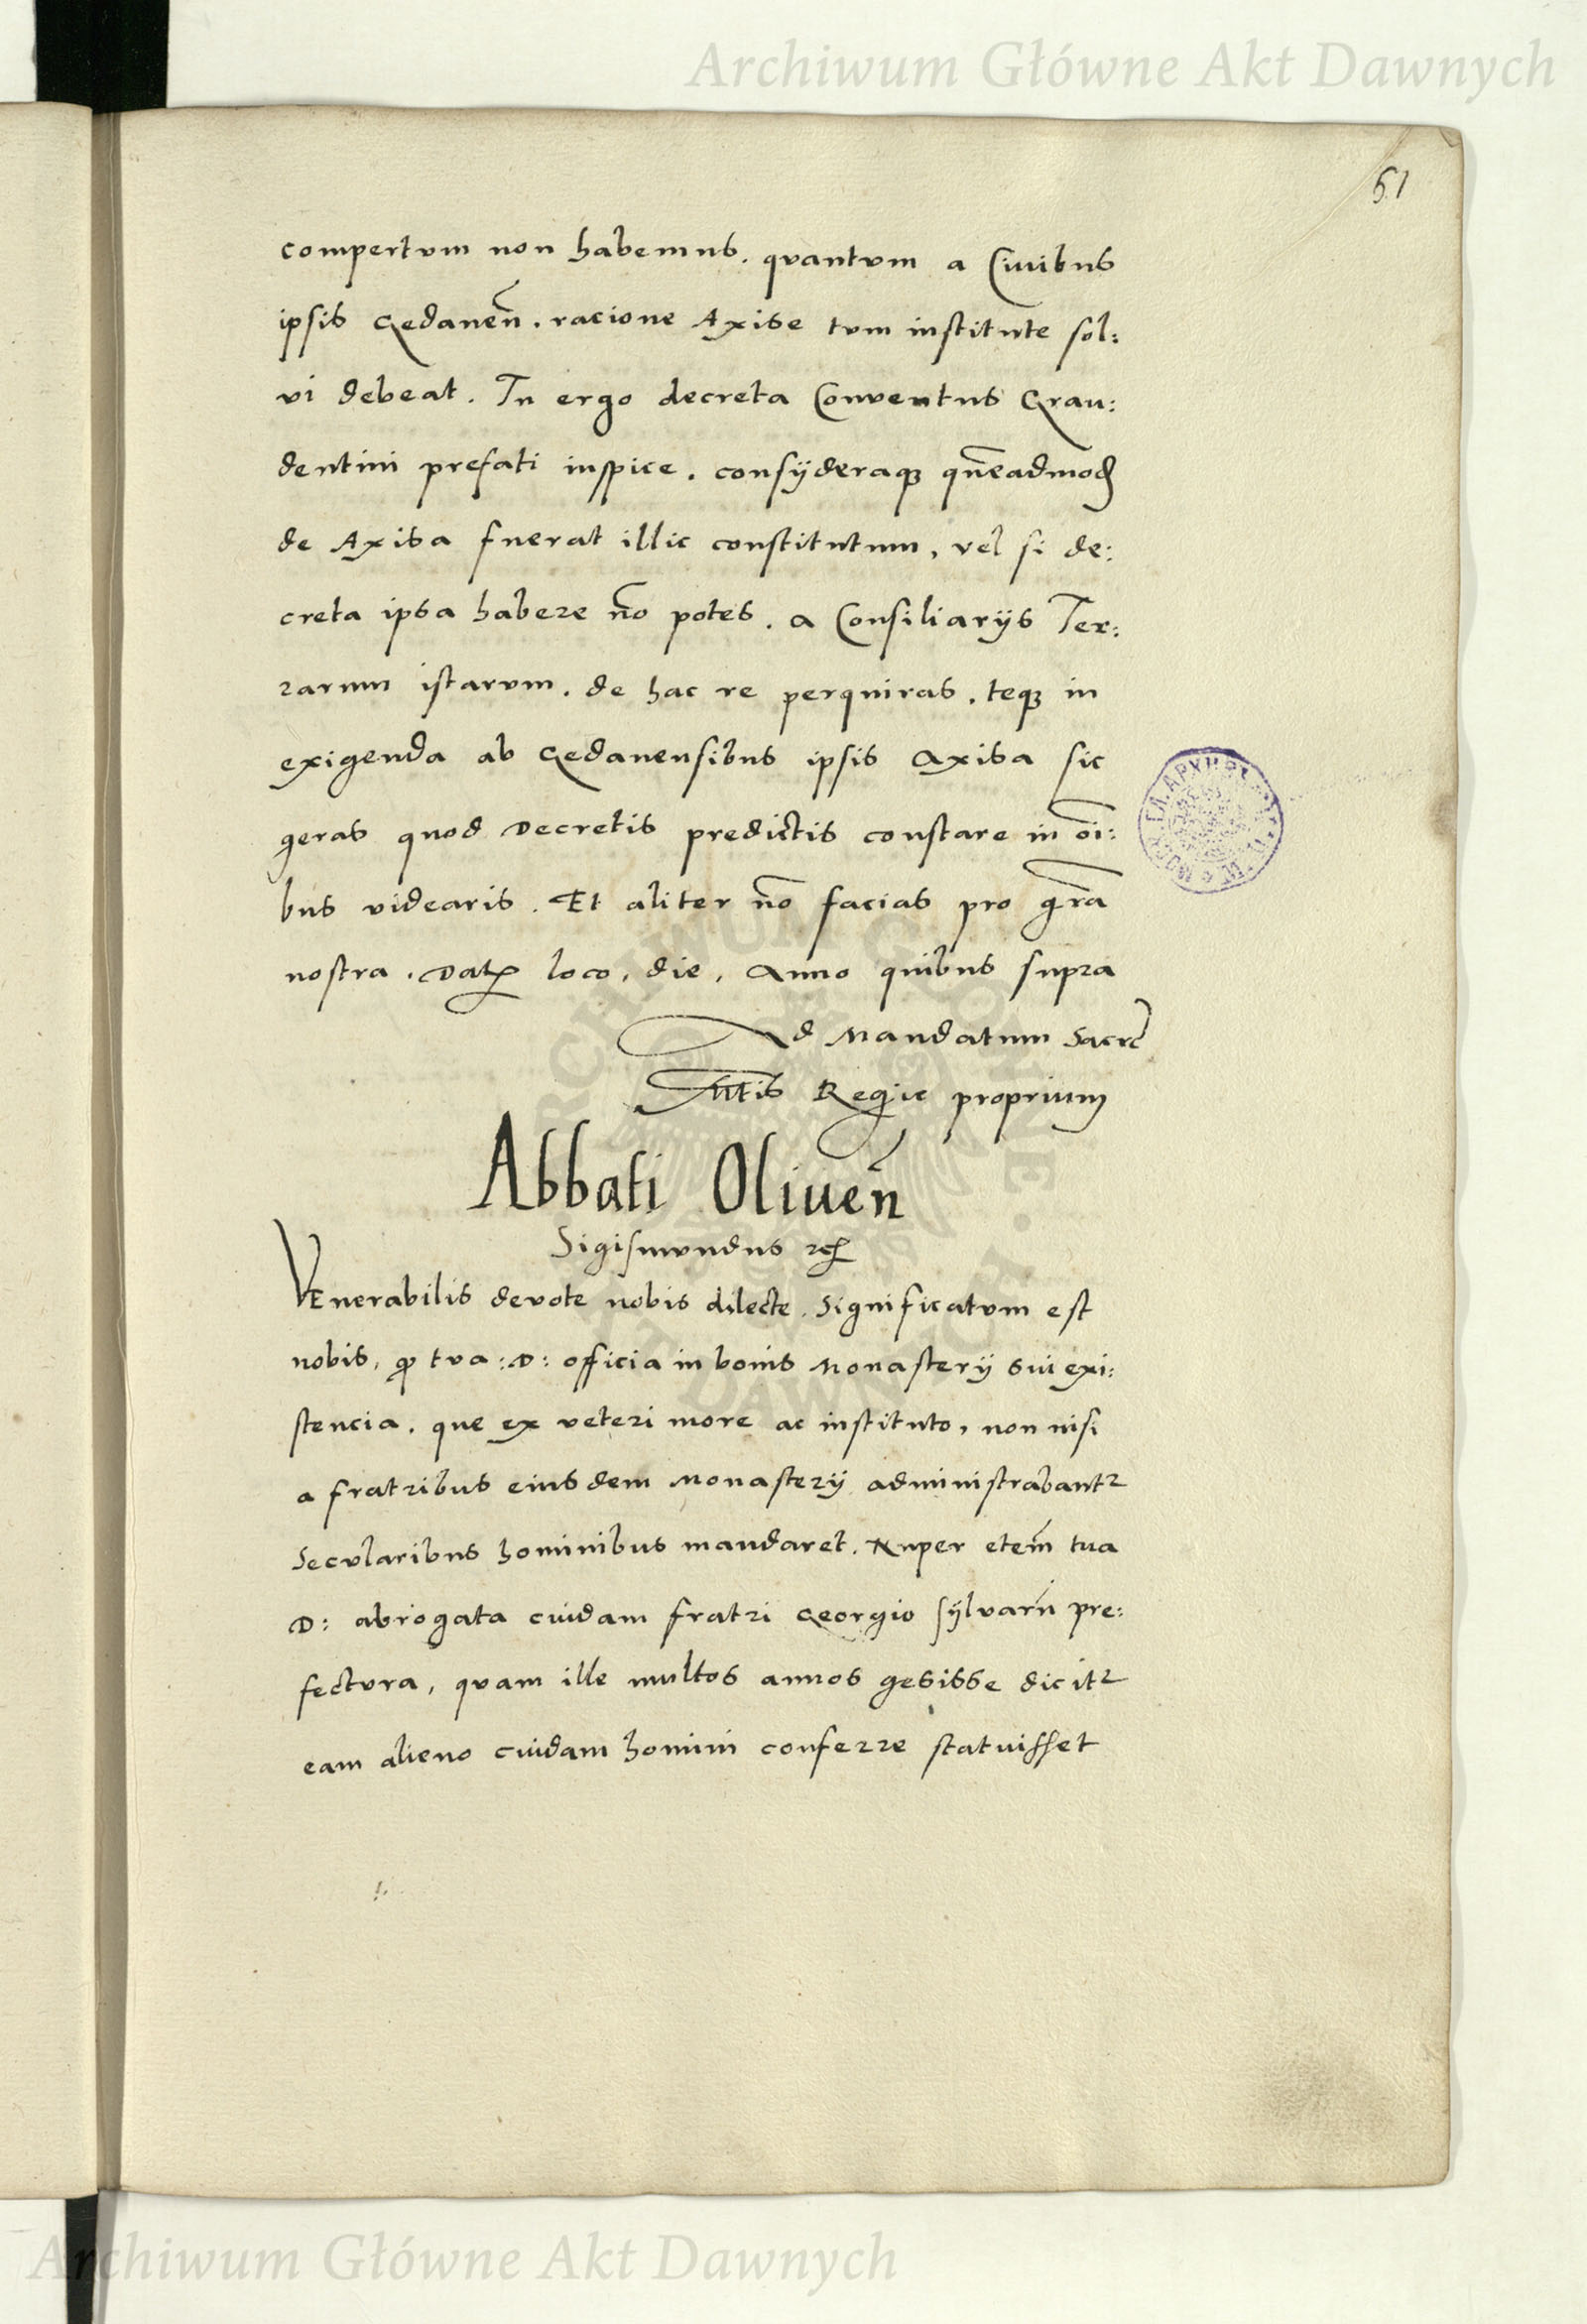 Archiwum Główne Akt Dawnych
51
compertum non habemus. quantum a Ciuibus
ipsis Gedanen̄. racione Axise tum institute sol:
vi debeat. Tu ergo decreta Conventus Grau:
dentini prefati inspice. consyderaqꝫ qūeadmod
de Axisa fuerat illic constitutum, vel si de:
creta ipsa habere nō potes. a Consiliarijs Ter:
rarum istarum. de hac re perquiras. teqꝫ in
exigenda ab Gedanensibus ipsis Axisa sic
geras quod Decretis predictis constare in oī:
bus videaris. Et aliter nō facias pro gr̄a
nostra. Datꝭ loco, die, Anno quibus supra
Ad Mandatum Sacre
Mtis Regie proprium
Abbati Oliuen̄
Sigismundus rex
VEnerabilis devote nobis dilecte. Significatum est
nobis, ꝙ tua: D: officia in bonis Monasterij sui exi:
stencia. que ex veteri more ac instituto, non nisi
a fratribus eiusdem Monasterij administrabantr
Secularibus hominibus mandaret. Nuper etem̄ tua
D: abrogata cuidam fratri Georgio sylvarn̄ pre:
fectura, quam ille multos annos gesisse dicitr
eam alieno cuidam homini conferre statuisset
Archiwum Główne Akt Dawnych